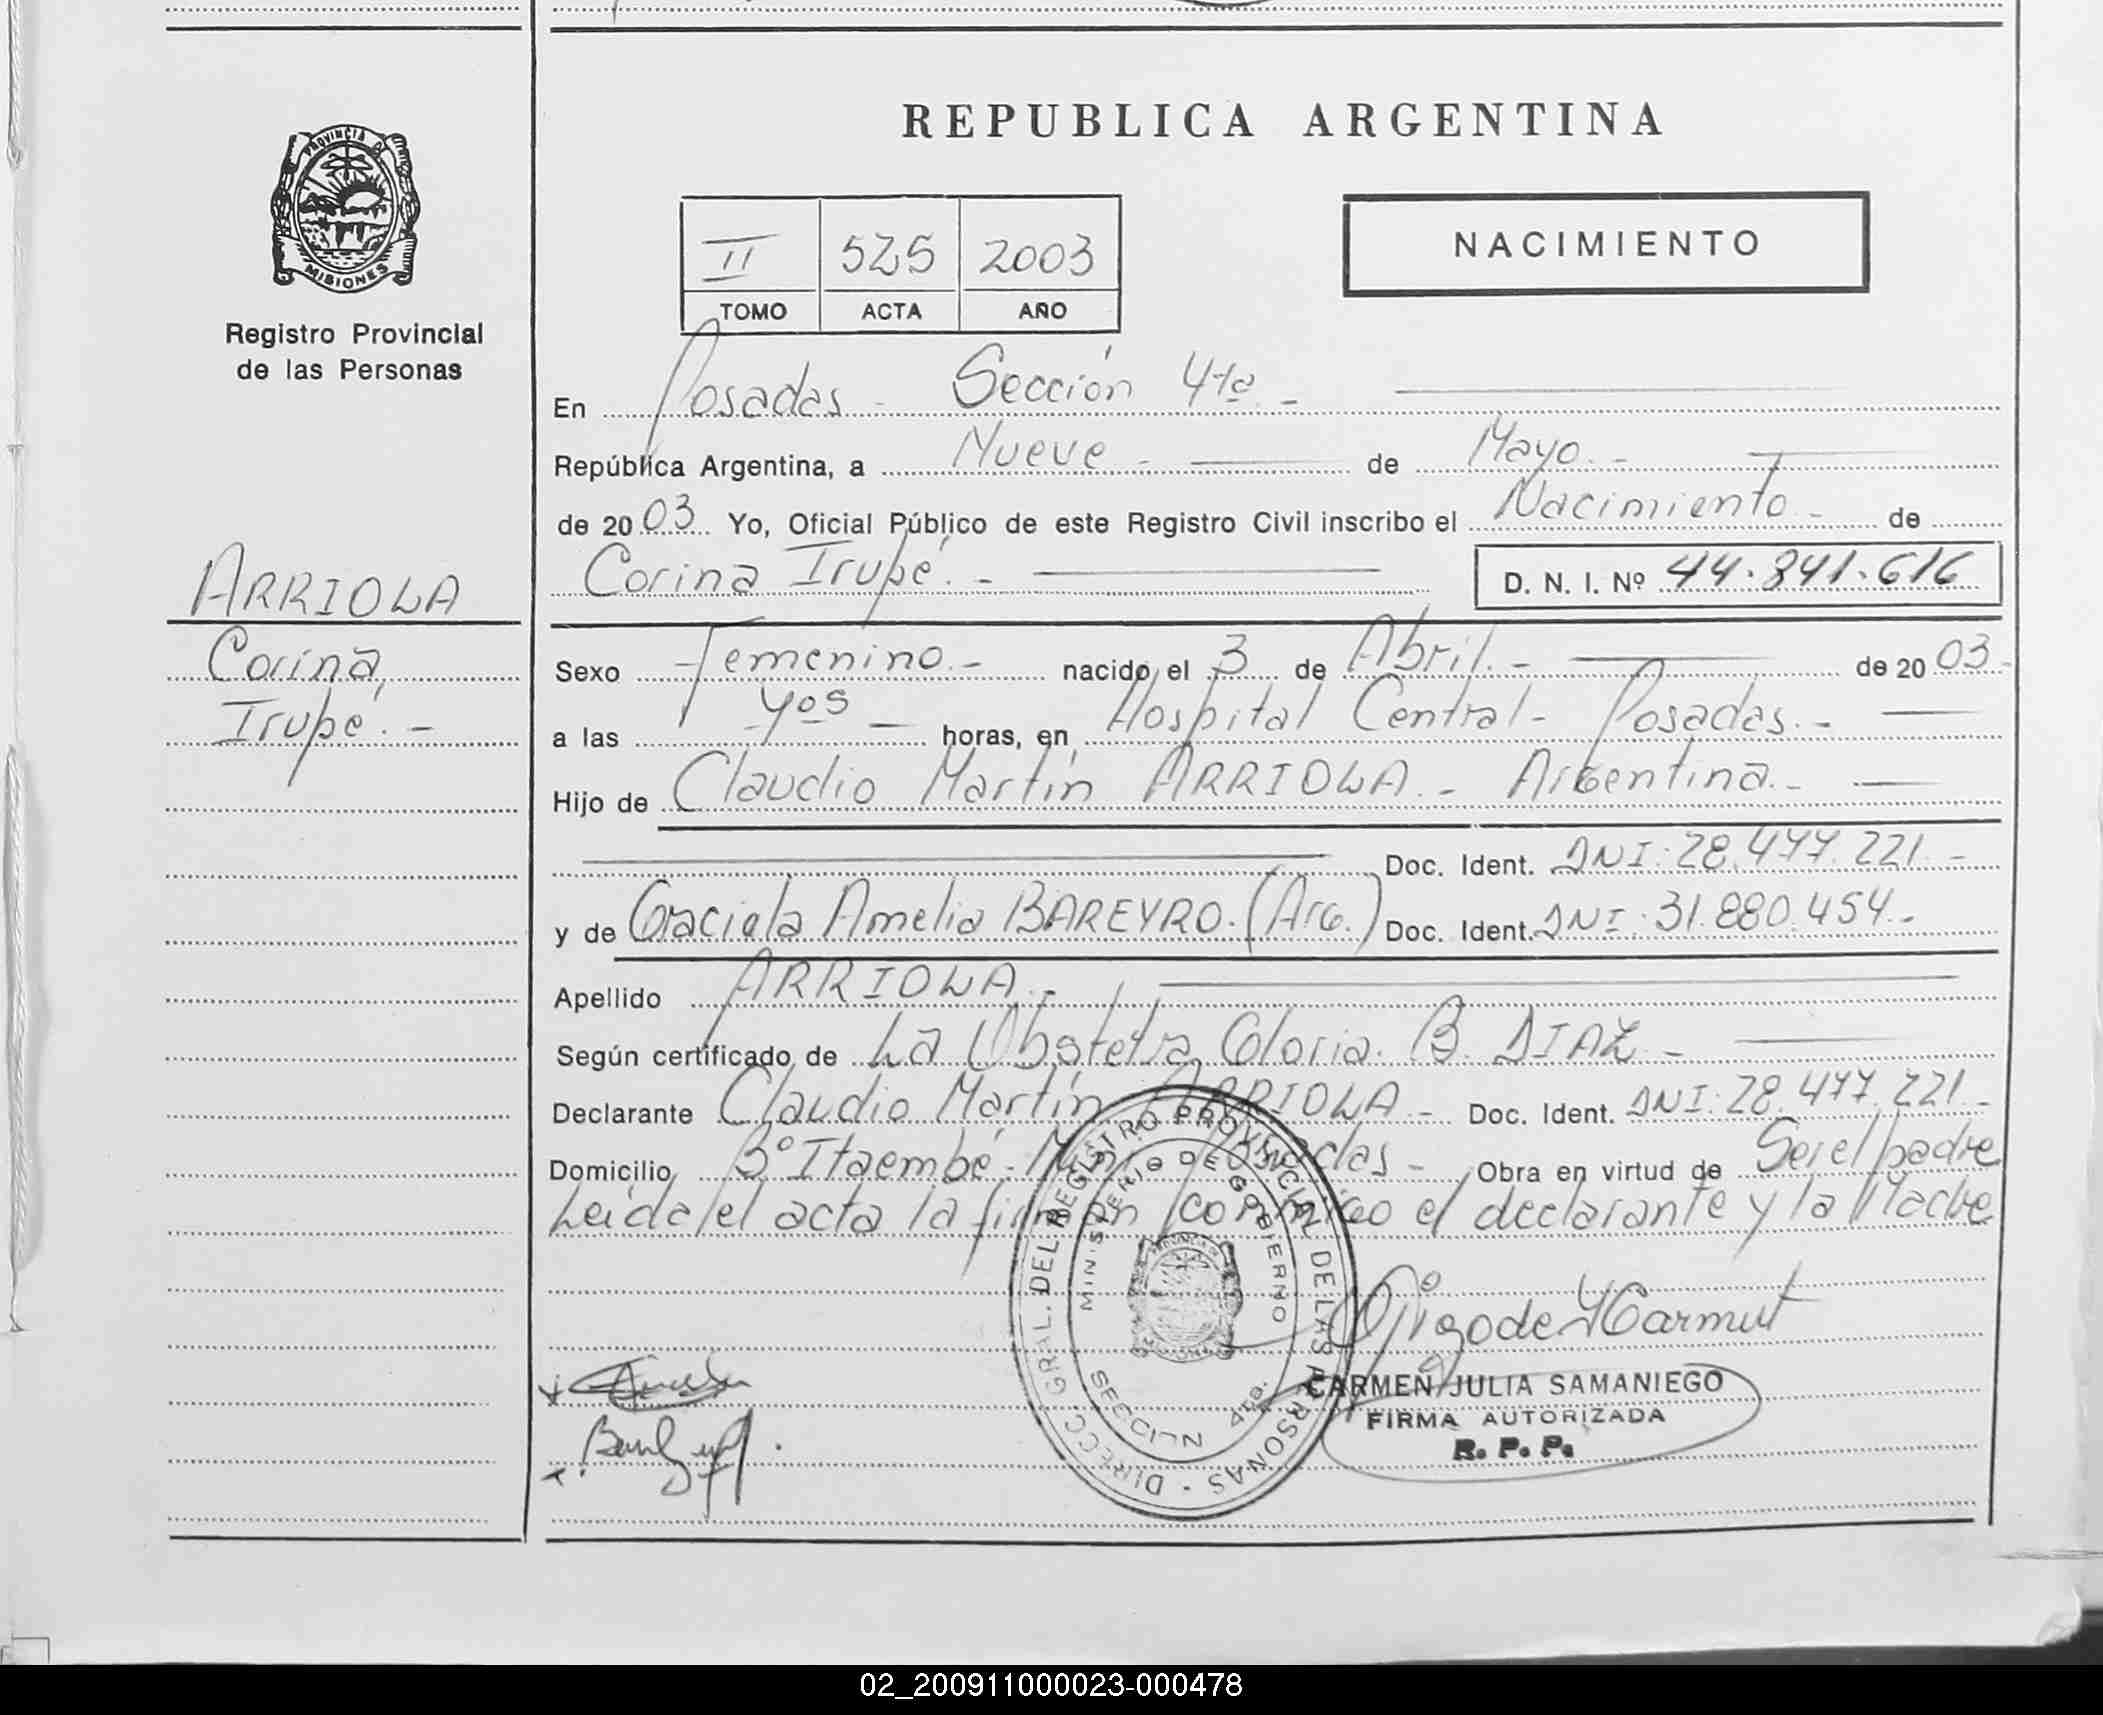 REPUBLICA ARGENTINA
PROVINCIA DE
MISIONES
Registro Provincial
de las Personas
II 525 2003
TOMO ACTA AÑO
NACIMIENTO
En Posadas - Sección 4ta. -
República Argentina, a Nueve - de Mayo. -
de 2003. Yo, Oficial Público de este Registro Civil inscribo el Nacimiento - de
Corina Irupé. - D. N. I. Nº 44.841.616
ARRIOLA
Corina
Irupé. -
Sexo Femenino. - nacido el 3 de Abril. - de 2003. -
a las horas, en Hospital Central - Posadas. -
Hijo de Claudio Martín ARRIOLA. - Argentina. -
Doc. Ident. DNI: 28.477.221. -
y de Graciela Amelia BAREYRO. (Arg.) Doc. Ident. DNI: 31.880.454. -
Apellido ARRIOLA. -
Según certificado de La Obstetra Gloria. B. DIAZ. -
Declarante Claudio Martín ARRIOLA. - Doc. Ident. DNI: 28.477.221. -
Domicilio Bº Itaembé - Miní Posadas - Obra en virtud de Ser el padre
Leida el acta la firman conmigo el declarante y la Madre
DIRECC. GRAL. DEL REGISTRO PROVINCIAL DE LAS PERSONAS
MINISTERIO DE GOBIERNO
SECCION 4ta.
CARMEN JULIA SAMANIEGO
FIRMA AUTORIZADA
R. P. P.
02_200911000023-000478